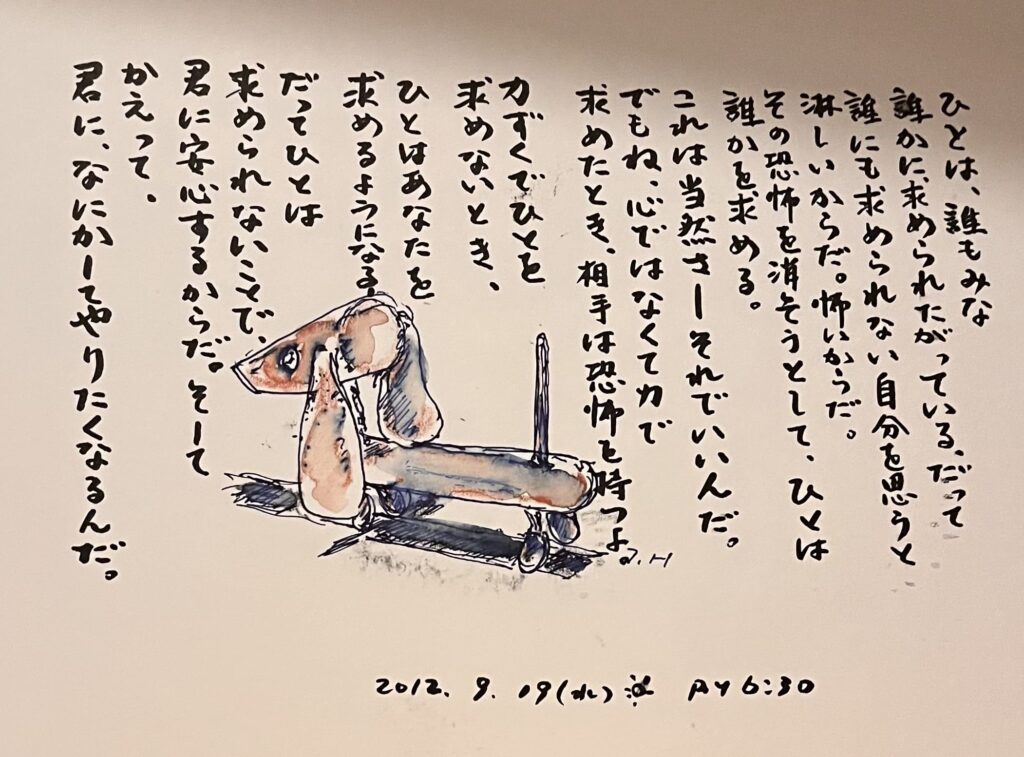 ひとは、誰もみな
誰かに求められたがっている、だって
誰にも求められない自分を思うと
淋しいからだ。怖いからだ。
その恐怖を消そうとして、ひとは
誰かを求める。
これは当然さーそれでいいんだ。
でもね、心ではなくて力で
求めたとき、相手は恐怖を持つよ。
力ずくでひとを
求めないとき、
ひとはあなたを
求めるようになる、
だってひとは
求められないことで、
君に安心するからだ。そして
かえって、
君に、なにかしてやりたくなるんだ。
a.H
2012. 9. 19(水) AM 6:30